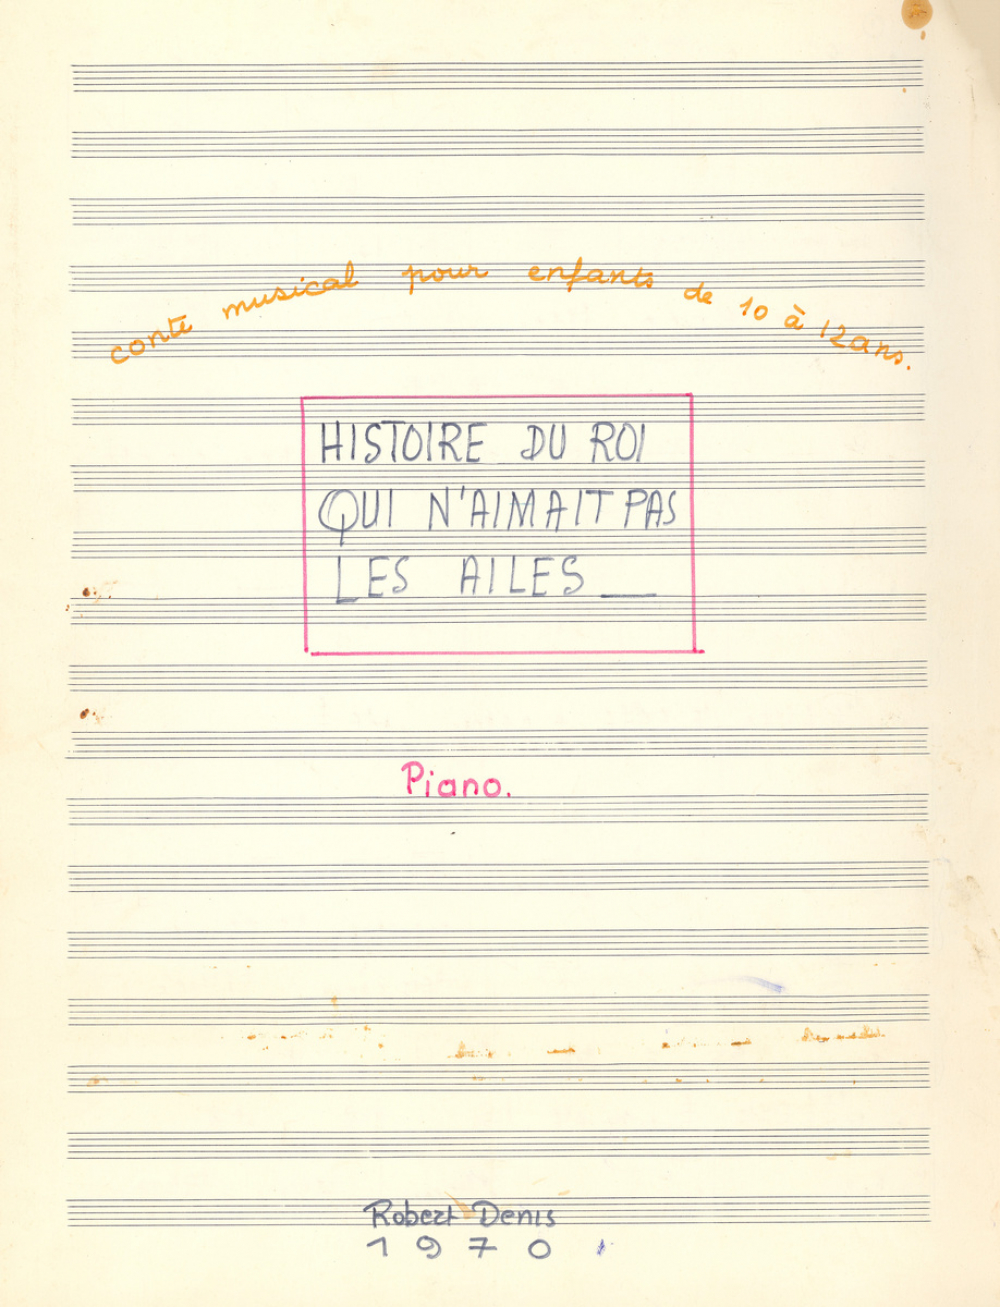 conte musical pour enfants de 10 à 12 ans.
HISTOIRE DU ROI
QUI N'AIMAIT PAS
LES AILES__
Piano.
Robert Denis
1970